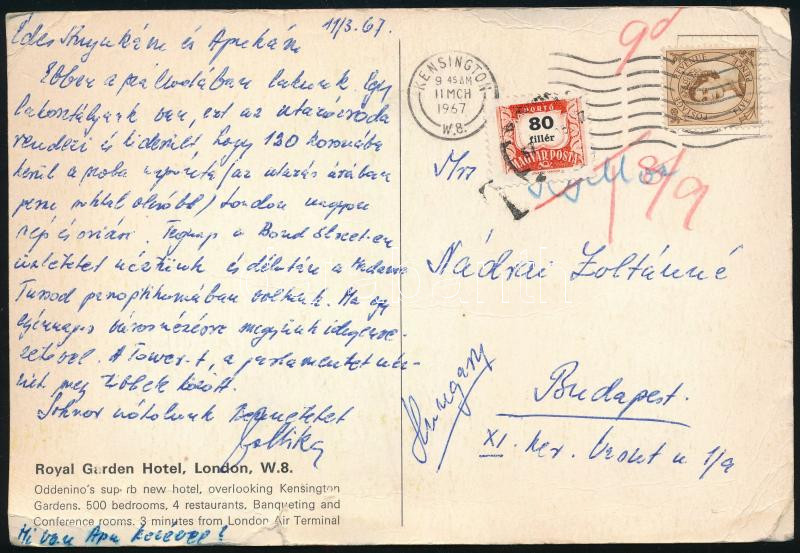 11/3.67.
Édes Anyukám és Apukám
Ebben a szállodában lakunk. Egy
lakosztályunk van, ezt az utazóiroda
rendezi és kiderült hogy 130 koronába
kerül a szoba naponta (az utazás árában
persze sokkal olcsóbb) London nagyon
szép és óriási. Tegnap a Bond Street-en
üzleteket néztünk és délután a Madame
Tussod panoptikumában voltunk. Ma egy
egésznapos városnézésre megyünk idegenve-
zetővel. A Tower-t, a parlamentet néz-
zük meg többek között.
Sokszor csókolunk Benneteket
Royal Garden Hotel, London, W.8.
Oddenino's superb new hotel, overlooking Kensington
Gardens. 500 bedrooms, 4 restaurants. Banqueting and
Conference rooms. 3 minutes from London Air Terminal
Mi van Apu kezével?
KENSINGTON
9 45 AM
11 MCH
1967
W.8.
PORTÓ
80
fillér
MAGYAR POSTA
T
9d
POSTAGE REVENUE
8/9
Mrs
Nádrai Zoltánné
Hungary
Budapest.
XI. ker. u 1/a